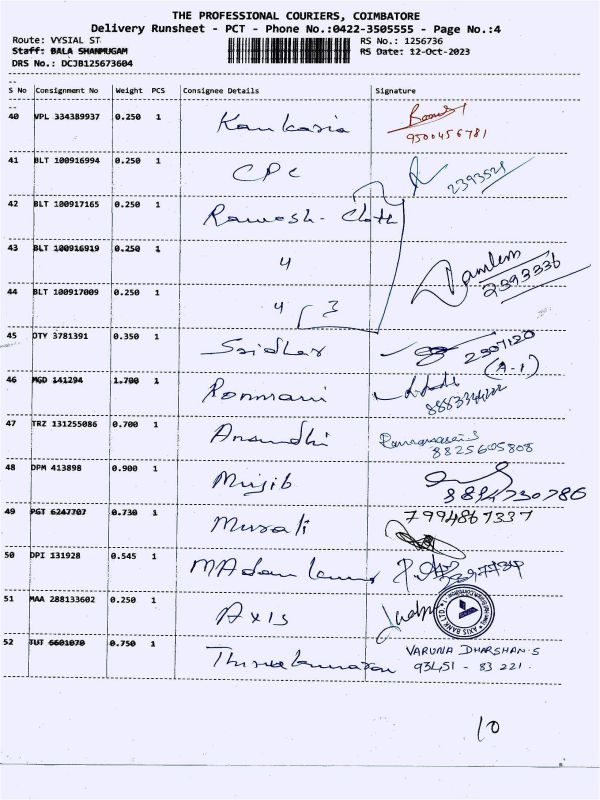 THE PROFESSIONAL COURIERS, COIMBATORE
Delivery Runsheet - PCT - Phone No.:0422-3505555 - Page No.:4
Route: VYSIAL ST
RS No.: 1256736
Staff: BALA SHANMUGAM
RS Date: 12-Oct-2023
DRS No.: DCJB125673604
S No Consignment No Weight PCS Consignee Details Signature
40 VPL 334389937 0.250 1 Kankaria
9500456781
41 BLT 100916994 0.250 1 CPC 2393521
42 BLT 100917165 0.250 1 Ramesh - Cloth
43 BLT 100916919 0.250 1 4
2393336
44 BLT 100917009 0.250 1 4 3
45 OTY 3781391 0.350 1 Sridhar 2307120
(A-1)
46 MGD 141294 1.700 1 Ponmani
47 TRZ 131255086 0.700 1 Anandhi
8825605808
48 DPM 413898 0.900 1 Mujib
8894730786
49 PGT 6247707 0.730 1 Murali 7994867337
50 DPI 131928 0.545 1
51 MAA 288133602 0.250 1 Axis
AXIS BANK LTD
52 TUT 6601070 0.750 1 VARUNA DHARSHAN.S
93451 - 83 221.
10